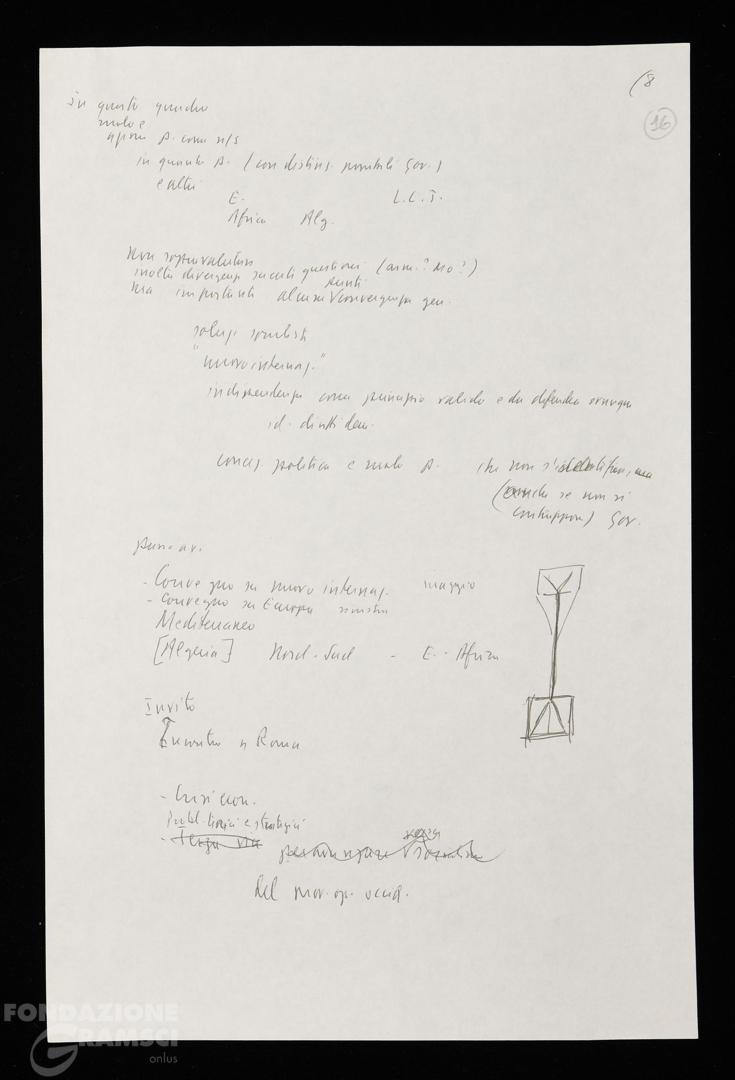 (8
16
in questo quadro
ruolo e
azione p. come n/s
in quanto p. (con distinz. possibili gov.)
e altri
E. L.C.I.
Africa Alg.
Non sopravvalutare
molte divergenze su certi questioni (arm.? MO?)
punti
ma importanti alcuni convergenza gen.
soluz. socialisti
"nuovo internaz."
indipendenza come principio valido e da difendere ovunque
id. diritti dem.
concez. politica e ruolo p. che non s'identificano, ma
(anche se non si
contrappone) gov.
- Convegno su nuovo internaz. maggio
- Convegno su Europa sinistra
Mediterraneo
[Algeria] Nord-Sud - E.-Africa
Invito
Incontro a Roma
- Crisi econ.
Probl. teorici e strategici
- Terza via per avanzare verso socialismo
del mov. op. occid.
FONDAZIONE
GRAMSCI
onlus